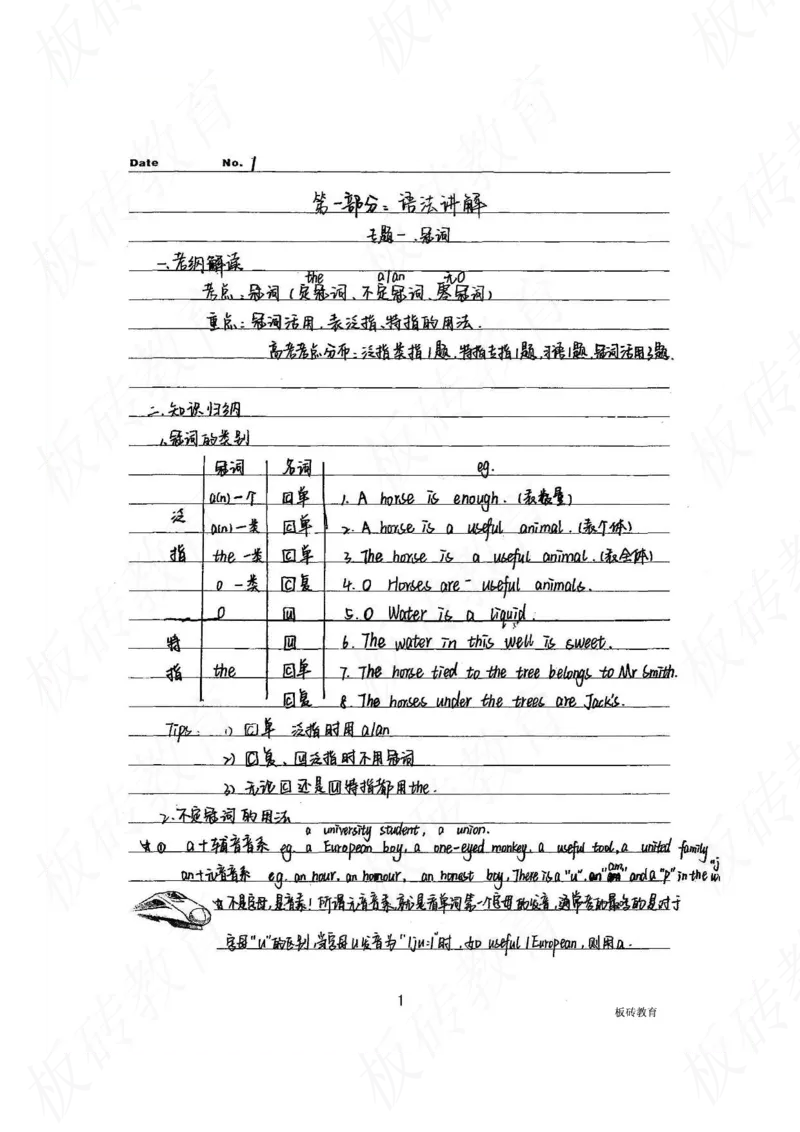 Date No. 1
第一部分：语法讲解
专题一、冠词
一、考纲解读
the a/an 无0
考点：冠词（定冠词、不定冠词、零冠词）
重点：冠词活用，表泛指、特指的用法．
高考考点分布：泛指类指1题，特指专指1题，习语1题，冠词活用3题．
二、知识归纳
1.冠词的类别
冠词 名词 eg.
泛指
a(n)一个 C单 1. A horse is enough.（表数量）
a(n)一类 C单 2. A horse is a useful animal.（表个体）
the 一类 C单 3. The horse is a useful animal.（表全体）
0 一类 C复 4. 0 Horses are useful animals.
0 U 5. 0 Water is a liquid.
特指
U 6. The water in this well is sweet.
the C单 7. The horse tied to the tree belongs to Mr Smith.
C复 8. The horses under the trees are Jack's.
Tips: 1) C单 泛指时用a/an
2) C复、U泛指时不用冠词
3) 无论C还是U特指都用the.
2.不定冠词的用法
a university student, a union.
☆① a+辅音音素 eg. a European boy, a one-eyed monkey, a useful tool, a united family
an+元音音素 eg. an hour, an honour, an honest boy, There is a "u", an "m" and a "p" in the
☆不是字母，是音素！所谓元音音素，就是看单词第一个字母的发音，通常考的最多的是对于
字母"u"的区别，当字母u发音为"/ju:/"时，如 useful / European，则用a.
1
板砖教育